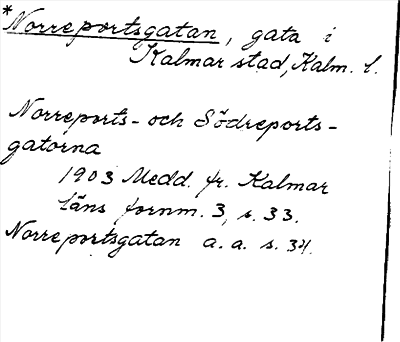 *Norreportsgatan, gata i
Kalmar stad, Kalm. l.
Norreports- och Södreports-
gatorna
1903 Medd. fr. Kalmar
läns fornm. 3, s. 33.
Norreportsgatan a.a. s. 34.